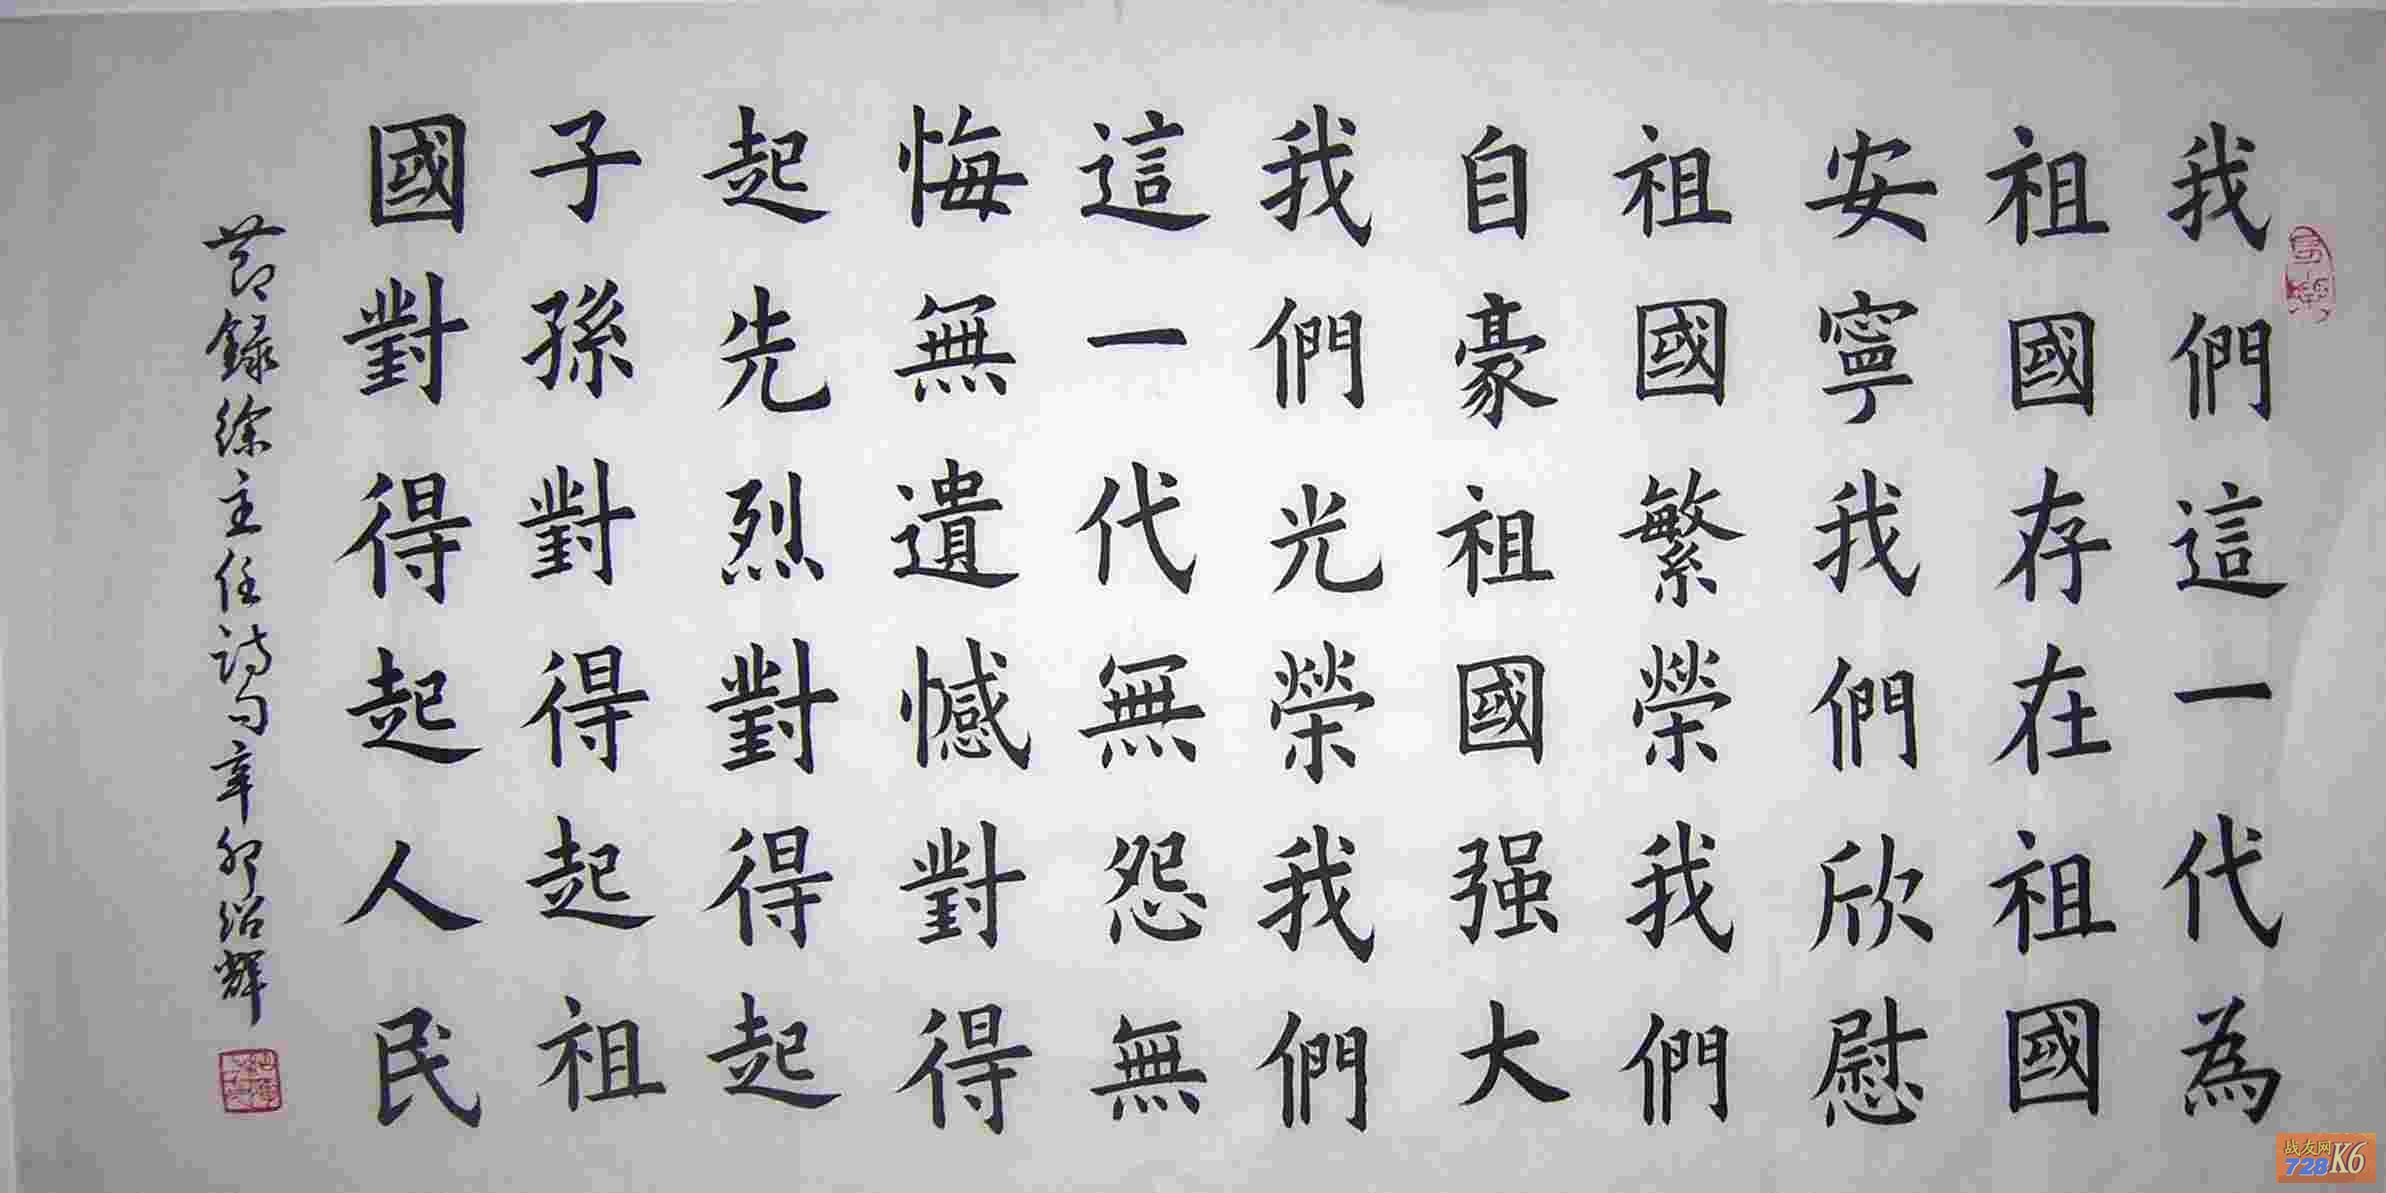 我們這一代為
祖國存在祖國
安寧我們欣慰
祖國繁榮我們
自豪祖國强大
我們光榮我們
這一代無怨無
悔無遺憾對得
起先烈對得起
子孫對得起祖
國對得起人民
節録徐主任詩句辛卯紹輝
战友网
728K6